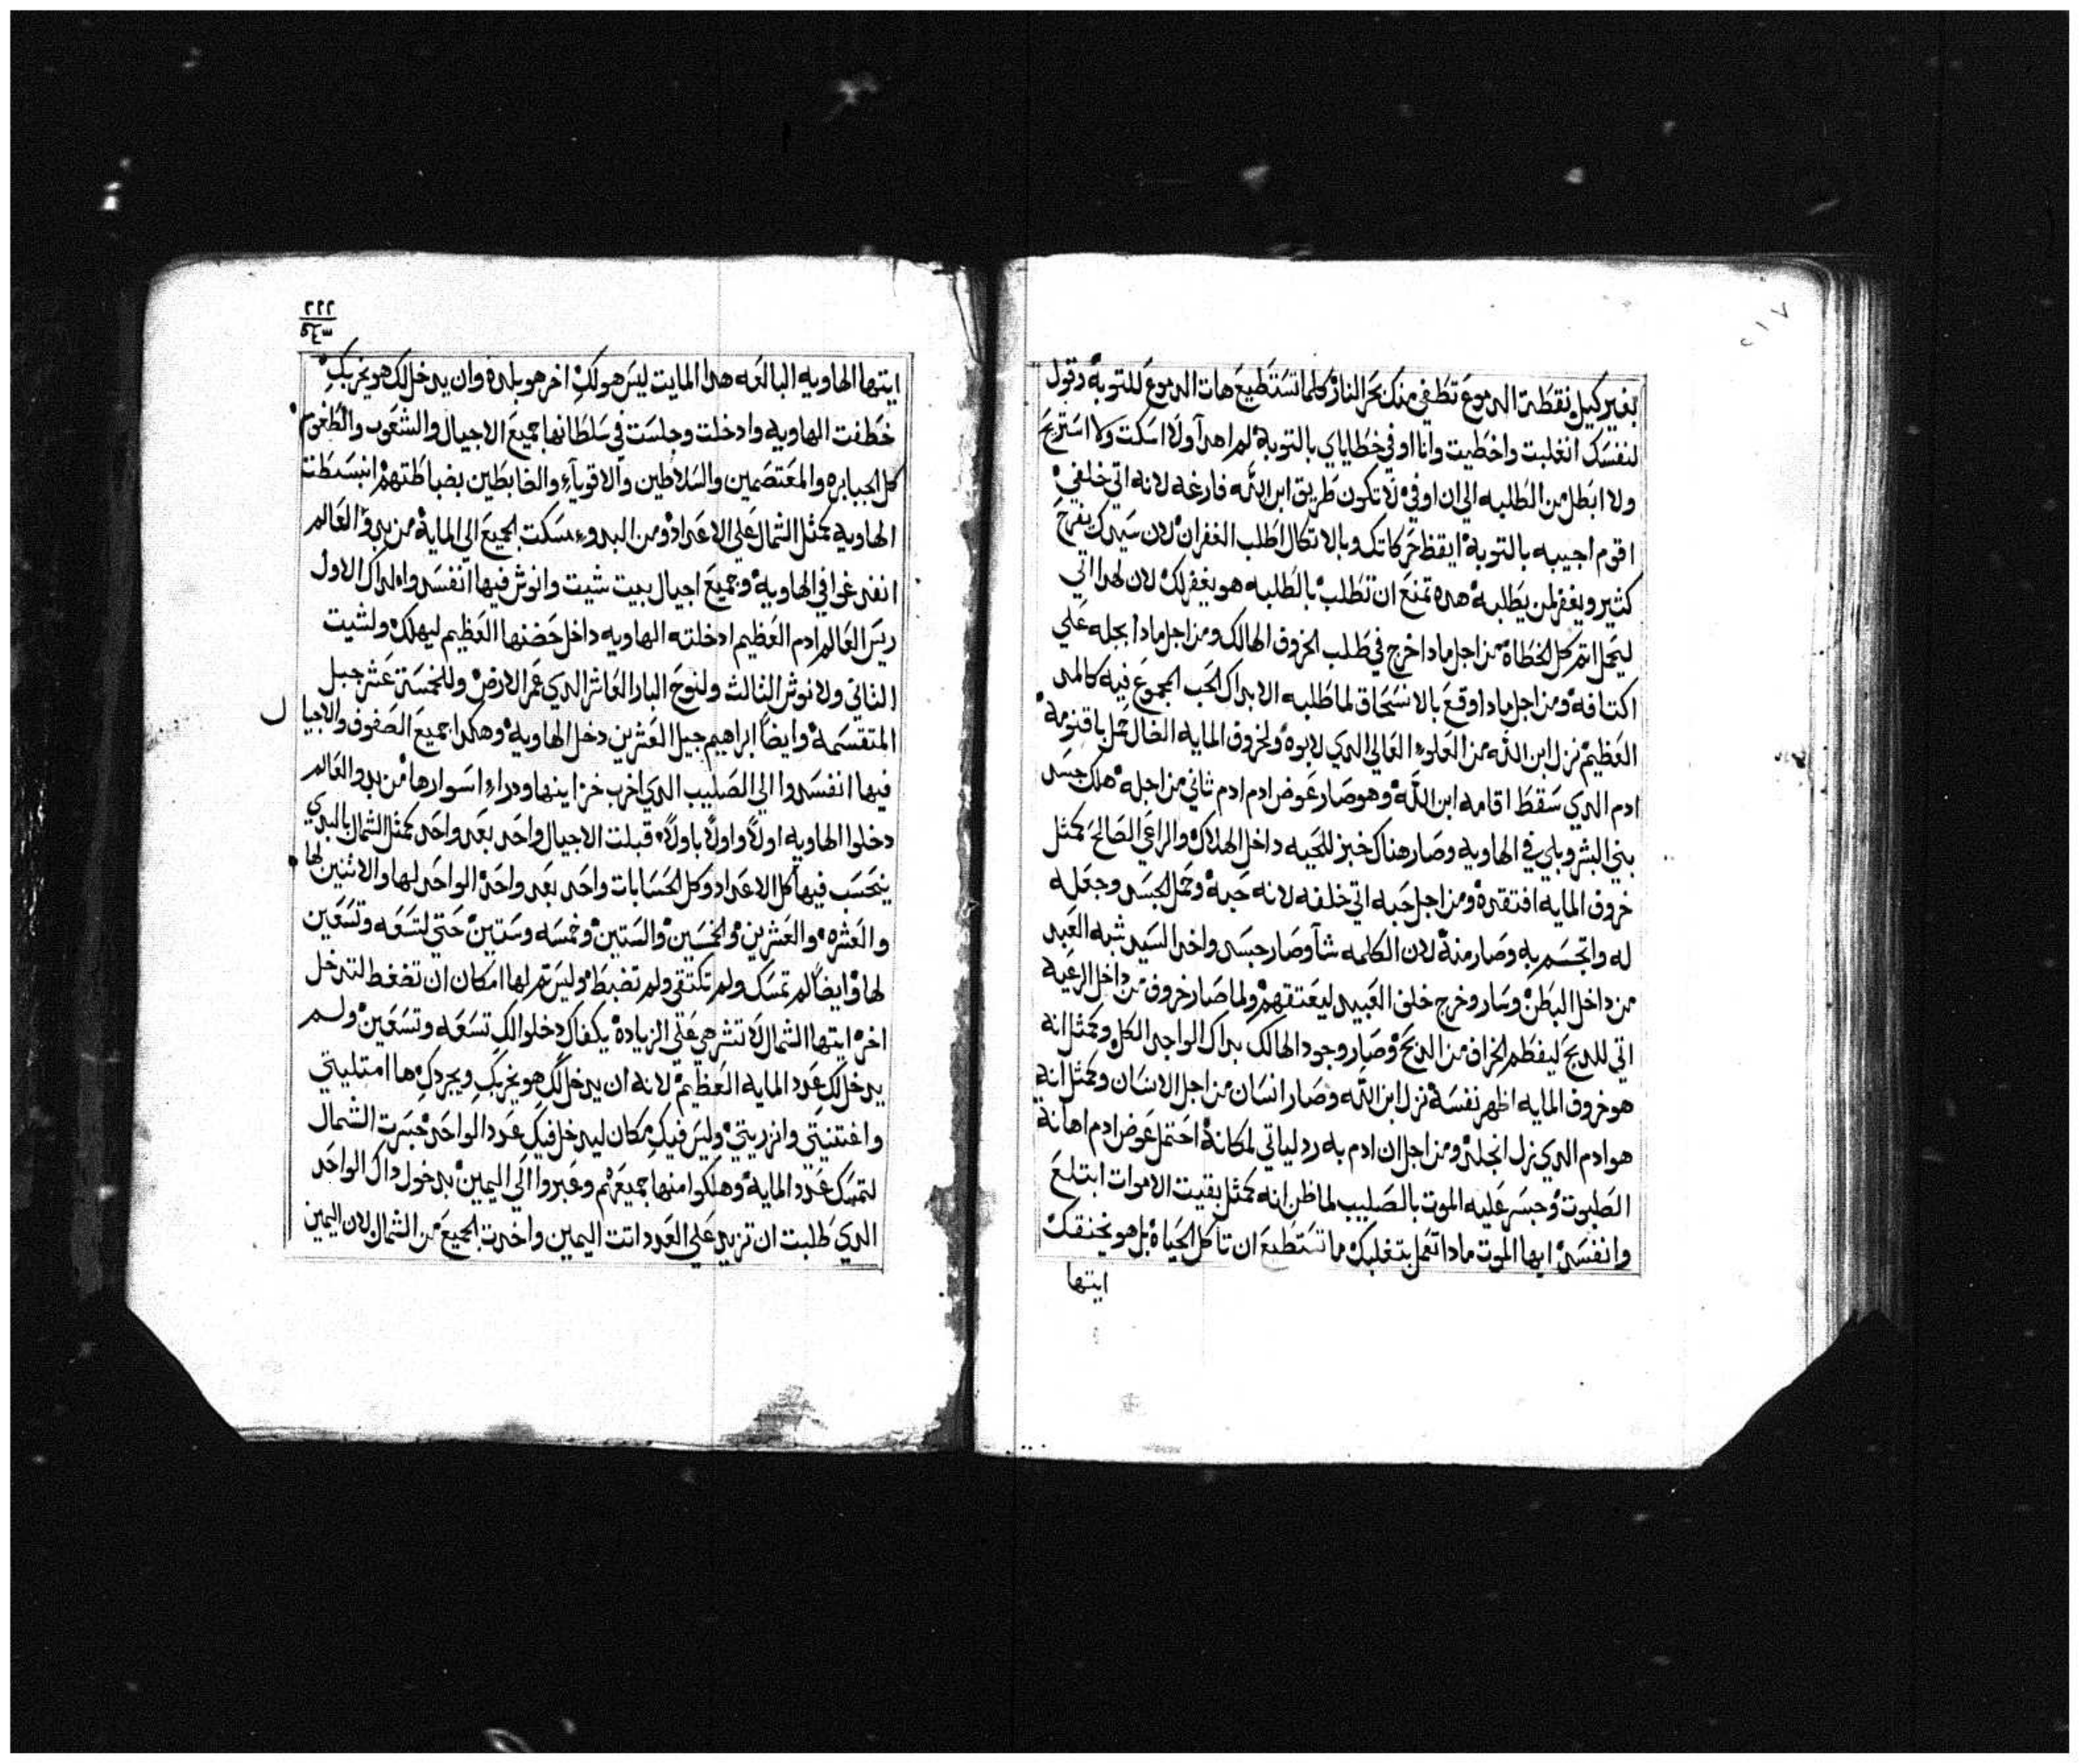 ٢١٧
بغير كيل نقطة الدموع تطفي منك بحر النار كلما تستطيع هات الدموع للتوبه وقول
لنفسك انغلبت واخطيت وانا اوفي خطاياي بالتوبة لم اهدا ولا اسكت ولا استريح
ولا ابطل من الطلبه الي ان اوفي لا تكون طريق ابن الله فارغه لانه اتي خلفي
اقوم اجيبه بالتوبة ايقظ حركاتك وبالاتكال اطلب الغفران لان سيدك يفرح
كثير ويغفر لمن يطلبه هده تمنع ان تطلب بالطلبه هو يغفر لك لان لهدا اتي
ليحل اتم كل الخطاة من اجل مادا خرج في طلب الخروف الهالك ومن اجل مادا بجله علي
اكتافه ومن اجل مادا وقع بالاستحاق لما طلبه الا بداك الحب المجموع فيه كالمد
العظيم نزل ابن الله من العلوء العالي الدي لابوه ولخروف المايه الضال حمل باقنومه
ادم الدي سقط اقامه ابن الله وهو صار عوض ادم ادم تاني من اجله هلك جسد
بني البشر وبلي في الهاويه وصار هناك خبز للحيه داخل الهلاك والراعي الصالح كمثل
خروف المايه افتقده ومن اجل حبه اتي خلفه لانه حبه وحمل الجسد وجعله
له واتجسم به وصار منه لان الكلمه شآ وصار جسد واخد السيد شبه العبد
من داخل البطن وسار وخرج خلف العبيد ليعتقهم ولما صار خروف من داخل الرعية
اتي للدبح ليفطم الخراف من الدبح وصار وجود الهالك بداك الواجد الكل وكمثل انه
هو خروف المايه اظهر نفسه نزل ابن الله وصار انسان من اجل الانسان وكمثل انه
هو ادم الدي نزل انجلد ومن اجل ان ادم به رد لياتي لمكانه احتمل عوض ادم اهانة
الطبوت وجسر عليه الموت بالصليب لما ظن انه كمثل بقيت الاموات ابتلع
وانفسد ايها الموت مادا تعمل بتغلبك ما تستطيع ان تاكل الحياة بل هو يخنقك
ايتها
٢٢٢
٥٤٣
ايتها الهاويه البالعه هدا المايت ليس هو لك اخر هو بلده وان يدخل لك هو يخربك
خطفت الهاويه وادخلت وجلست في سلطانها جميع الاجيال والشعوب والطغوم
كل الجبابره والمعتصمين والسلاطين والاقويآء والضابطين بضباطتهم انبسطت
الهاويه كمثل الشمال علي الاعداد ومن البدوء مسكت الجميع الي المايه من بدو العالم
انفدغوا في الهاويه وجميع اجيال بيت شيت وانوش فيها انفسد واه لداك الاول
ريس العالم ادم العظيم ادخلته الهاويه داخل حضنها العظيم ليهلك ولشيت
التاني ولانوش التالث ولنوح البار العاشر الدي عمر الارض وللخمسة عشر جيل
المتقسمة وايضا ابراهيم جيل العشرين دخل الهاويه وهكدا جميع الصفوف والاجيا
ل
فيها انفسدوا الي الصليب الدي اخرب خزاينها ودراء اسوارها من بدو العالم
دخلوا الهاويه اولا واولا باولا قبلت الاجيال واحد بعد واحد كمثل الشمال بالبدي
ينحسب فيها كل الاعداد وكل الحسابات واحد بعد واحد الواحد لها والاتنين لها
والعشره والعشرين والخمسين والستين وخمسه وستين حتي لتسعه وتسعين
لها وايضا لم تمسك ولم تكتفي ولم تضبط وليس تم لها امكان ان تضغط لتدخل
اخر ايتها الشمال لا تنشرهي علي الزياده يكفاك دخلوا لك تسعه وتسعين ولم
يدخل لك عدد المايه العظيم لانه ان يدخل لك هو يخربك ويجردك ها امتليتي
واغتنيتي وانزريتي وليس فيك مكان ليدخل فيك عدد الواحد جسرت الشمال
لتمسك عدد المايه وهلكوا منها جميعهم وعبروا الي اليمين بدخول داك الواحد
الدي طلبت ان تزيد علي العدد اتت اليمين واخدت الجميع من الشمال لان اليمين